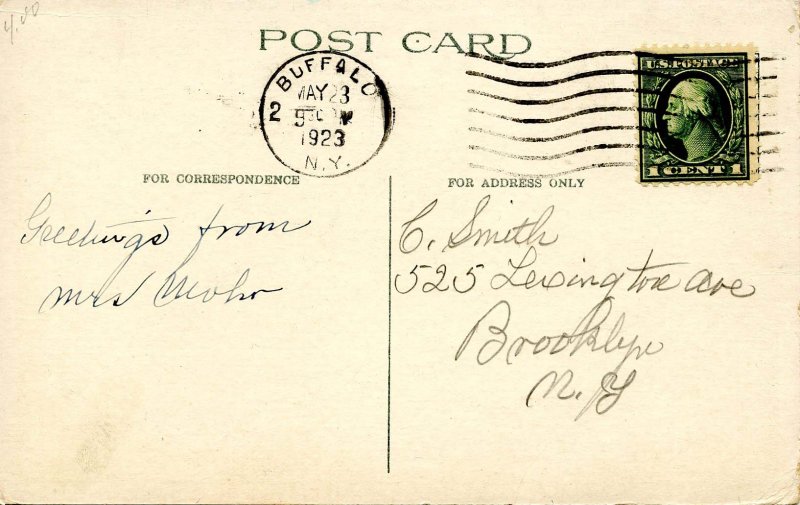 4.00
POST CARD
BUFFALO
MAY 23
2
1923
N.Y.
U.S. POSTAGE
1 CENT 1
FOR CORRESPONDENCE
FOR ADDRESS ONLY
Greetings from
Mrs
C. Smith
525 Lexington ave
Brooklyn
N. Y